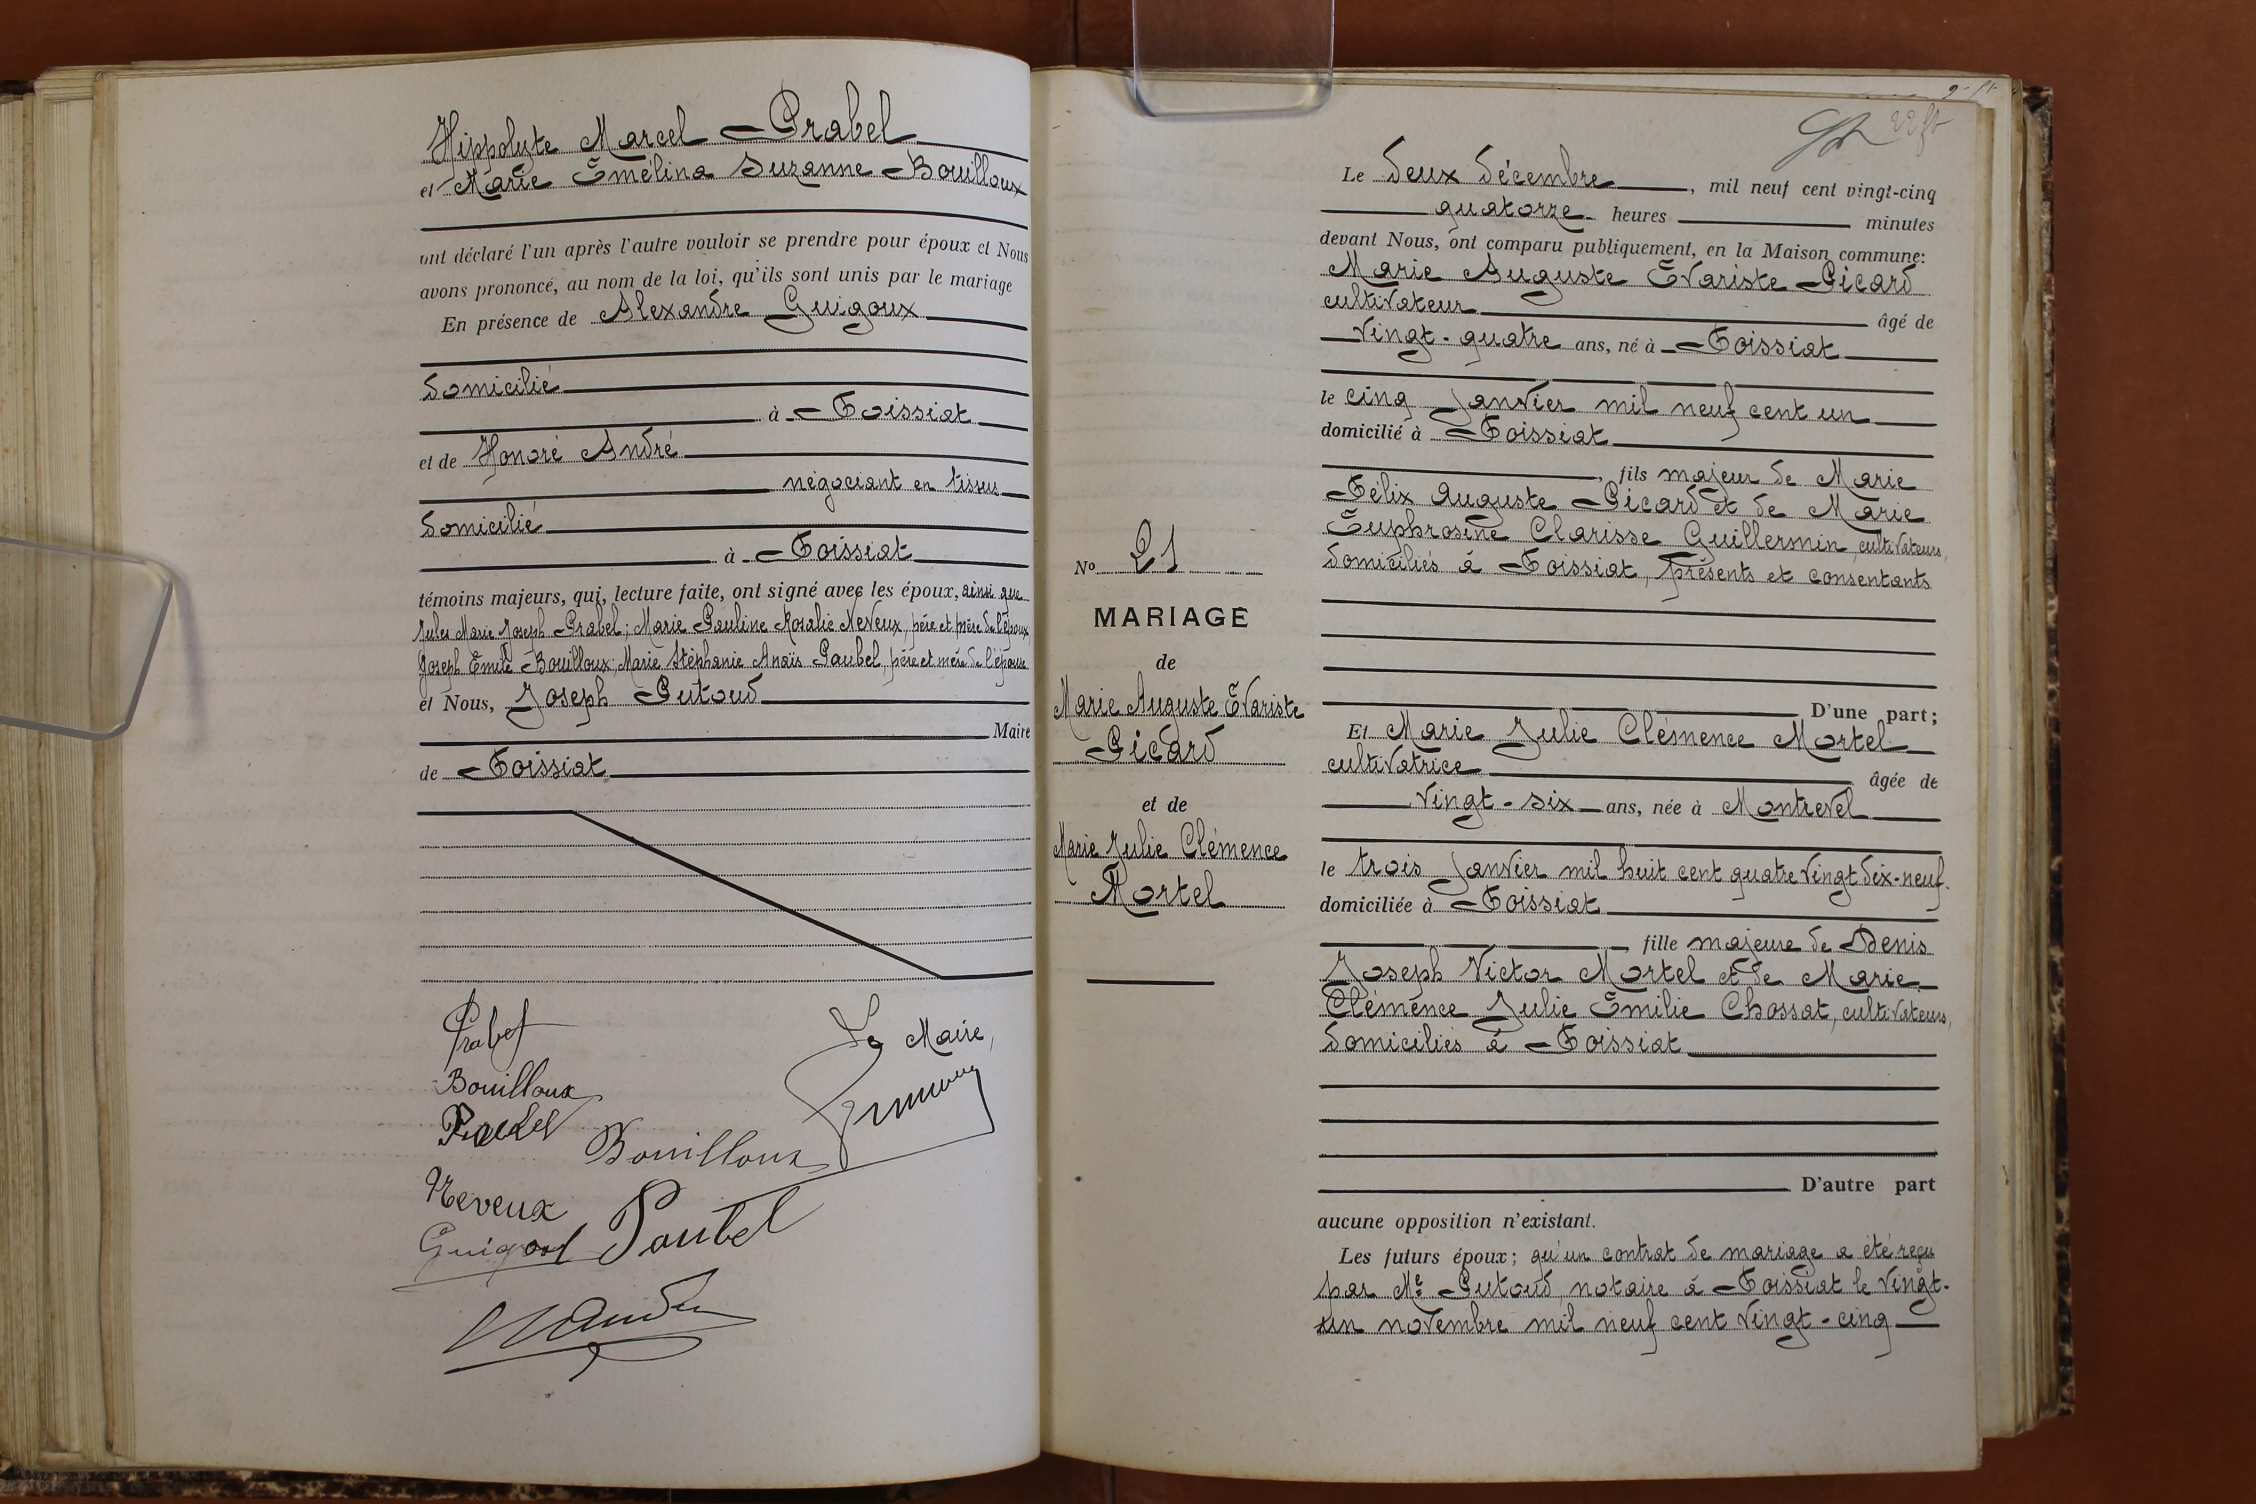 Hippolyte Marcel Prabel
et Marie Emélina Suzanne Bouilloux
ont déclaré l'un après l'autre vouloir se prendre pour époux et Nous
avons prononcé, au nom de la loi, qu'ils sont unis par le mariage
En présence de Alexandre Guigoux
domicilié
à Foissiat
et de Honoré André
négociant en tissu
domicilié
à Foissiat
témoins majeurs, qui, lecture faite, ont signé avec les époux, ainsi que
Jules Marie Joseph Prabel; Marie Pauline Rosalie Neveux, père et mère de l'époux
Joseph Emile Bouilloux; Marie Stéphanie Anaïs Paubel, père et mère de l'épouse
et Nous, Joseph Putoud
Maire
de Foissiat
Prabel
Le Maire,
Bouilloux
Prabel
Bouilloux
Neveux
Guigoux Paubel
22
Le deux décembre, mil neuf cent vingt-cinq
quatorze heures minutes
devant Nous, ont comparu publiquement, en la Maison commune:
Marie Auguste Evariste Picard
cultivateur âgé de
vingt-quatre ans, né à Foissiat
le cinq Janvier mil neuf cent un
domicilié à Foissiat
, fils majeur de Marie
Félix Auguste Picard et de Marie
Euphrosine Clarisse Guillermin, cultivateurs,
domiciliés à Foissiat, présents et consentants
D'une part;
Et Marie Julie Clémence Mortel
cultivatrice âgée de
vingt-six ans, née à Montrevel
le trois Janvier mil huit cent quatre vingt dix-neuf
domiciliée à Foissiat
, fille majeure de Denis
Joseph Victor Mortel et de Marie
Clémence Julie Emilie Chossat, cultivateurs,
domiciliés à Foissiat
D'autre part
aucune opposition n'existant.
Les futurs époux; qu'un contrat de mariage a été reçu
par Me Putoud, notaire à Foissiat le vingt-
un novembre mil neuf cent vingt-cinq
No 21
MARIAGE
de
Marie Auguste Evariste
Picard
et de
Marie Julie Clémence
Mortel